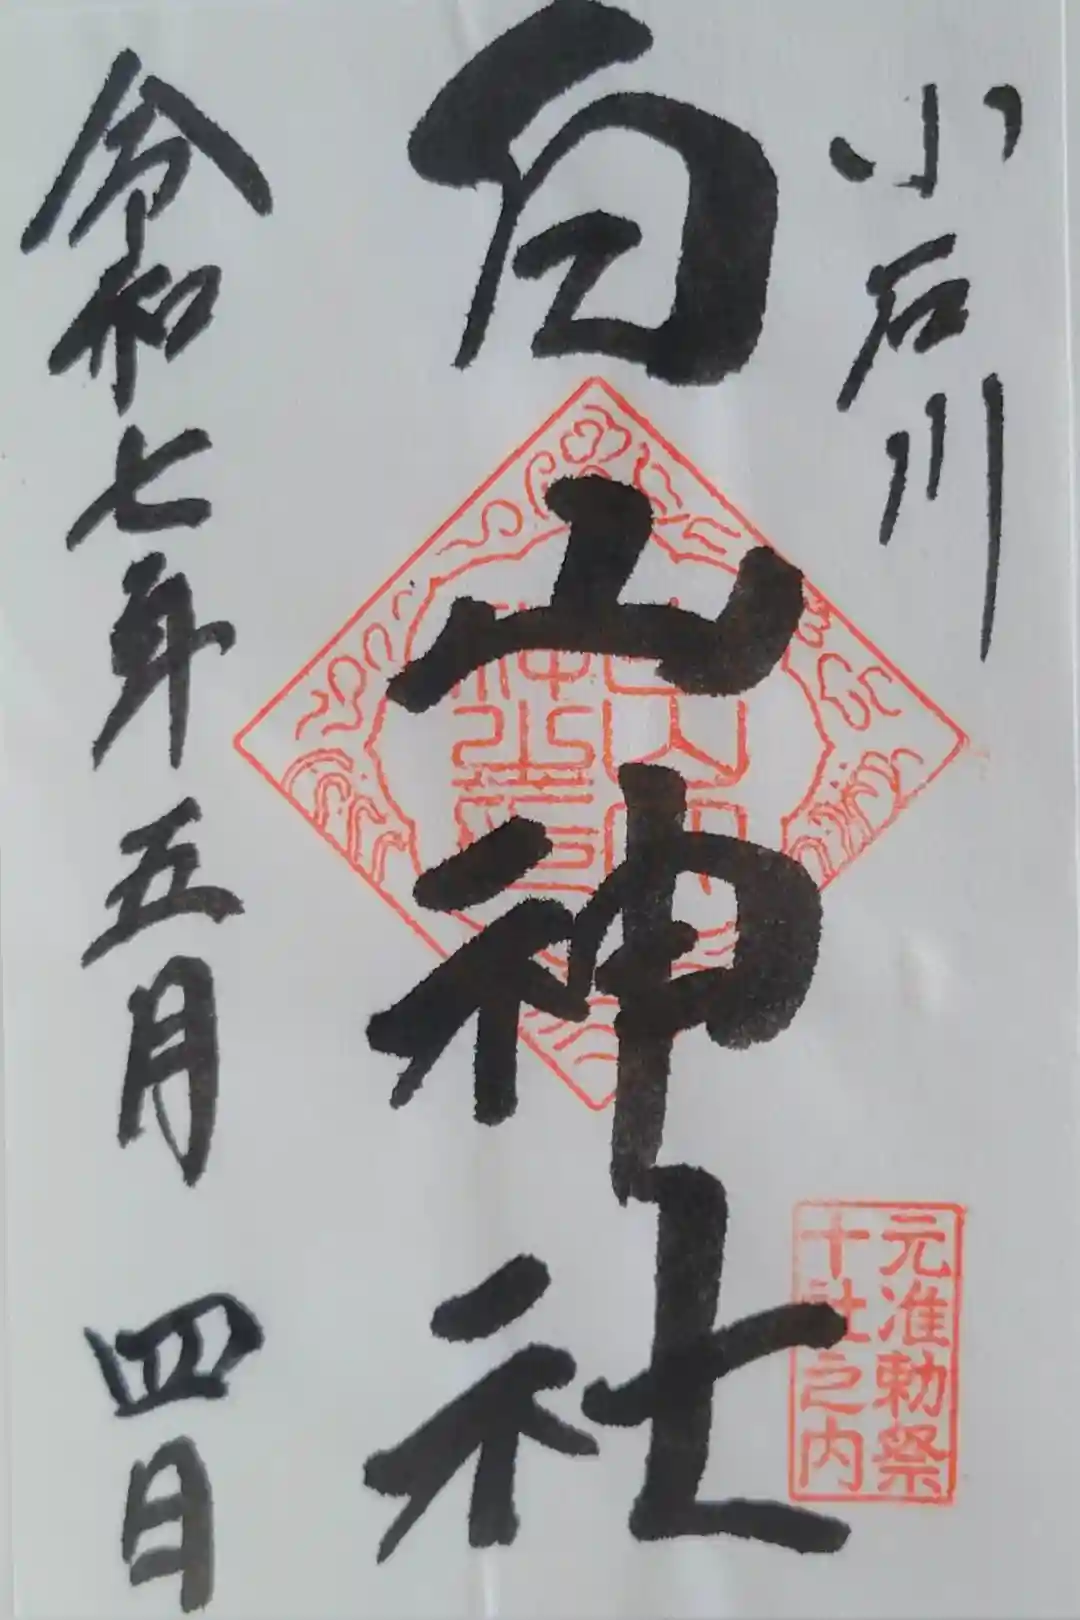 小石川
白山神社
令和七年五月四日
元准勅祭
十社之内